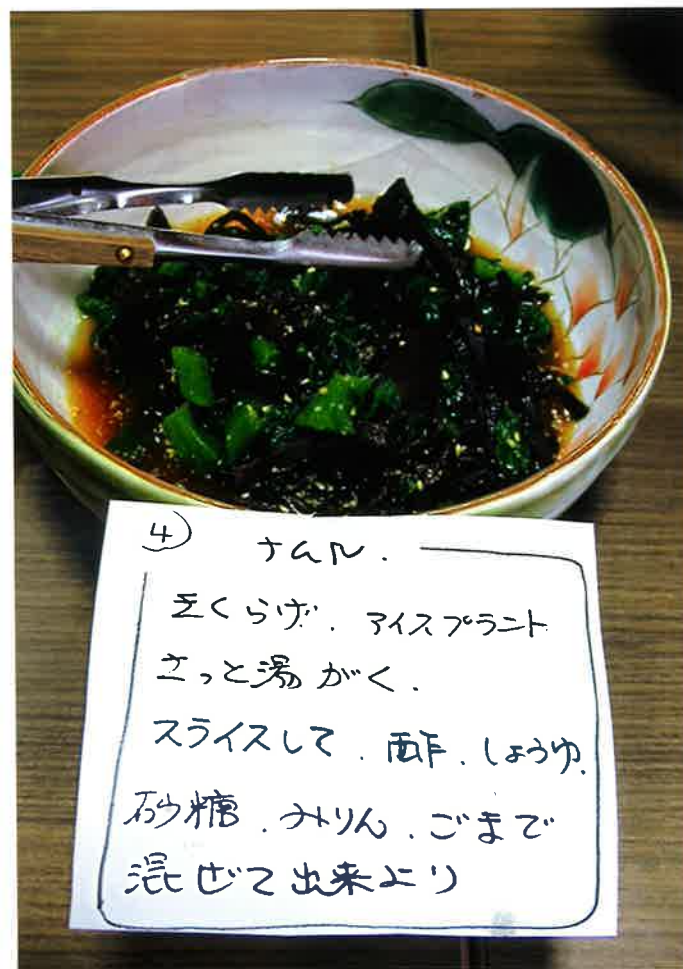 ④ ナムル.
きくらげ. アイスプラント
さっと湯がく.
スライスして. 酢. しょうゆ.
砂糖. みりん. ごまで
混ぜて出来上り